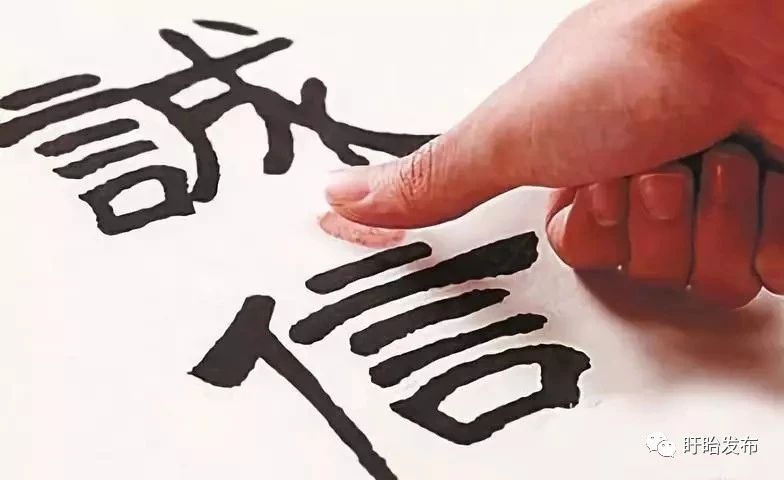 誠
信
盱眙发布